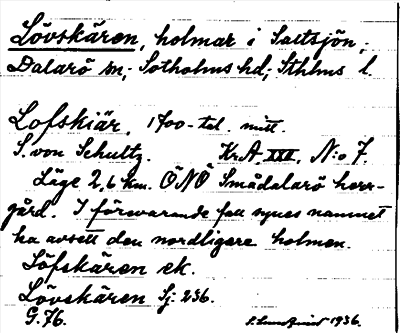 Lövskären, holmar i Saltsjön;
Dalarö sn; Sotholms hd; Sthlms l.
Lofskiär, 1700-tal. mitt.
S. von Schultz. Kr.A. XXX, N:o 7.
Läge 2,6 km. ÖNÖ Smådalarö herr-
gård. I förevarande fall synes namnet
ha avsett den nordligare holmen.
Löfskären ek.
Lövskären Sj: 236.
G. 76. 1936.